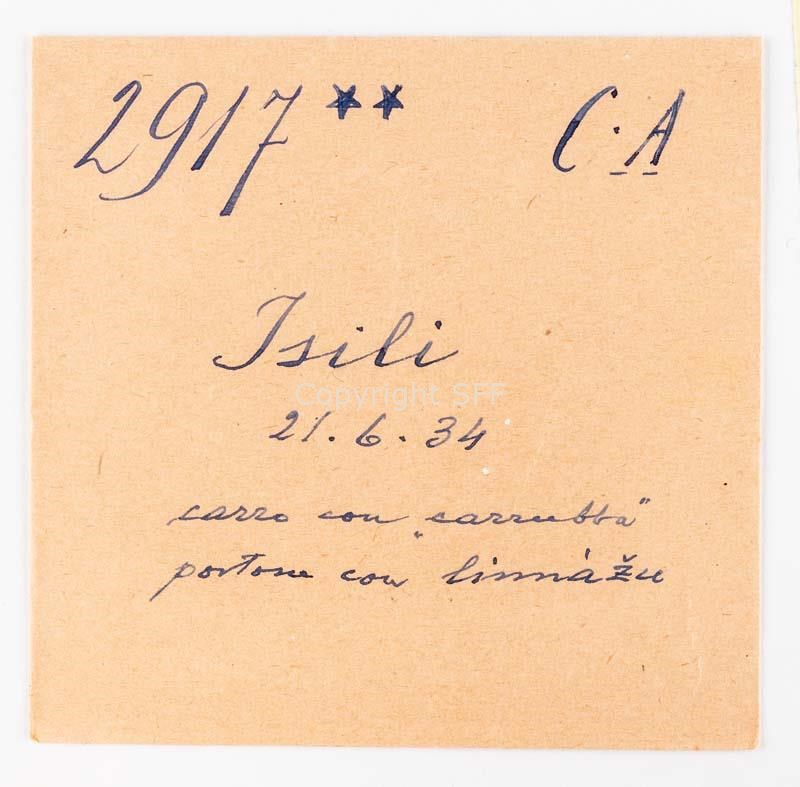 2917 ** C.A
Isili
Copyright SFF
21.6.34
carro con "carrubba"
portone con limnážu